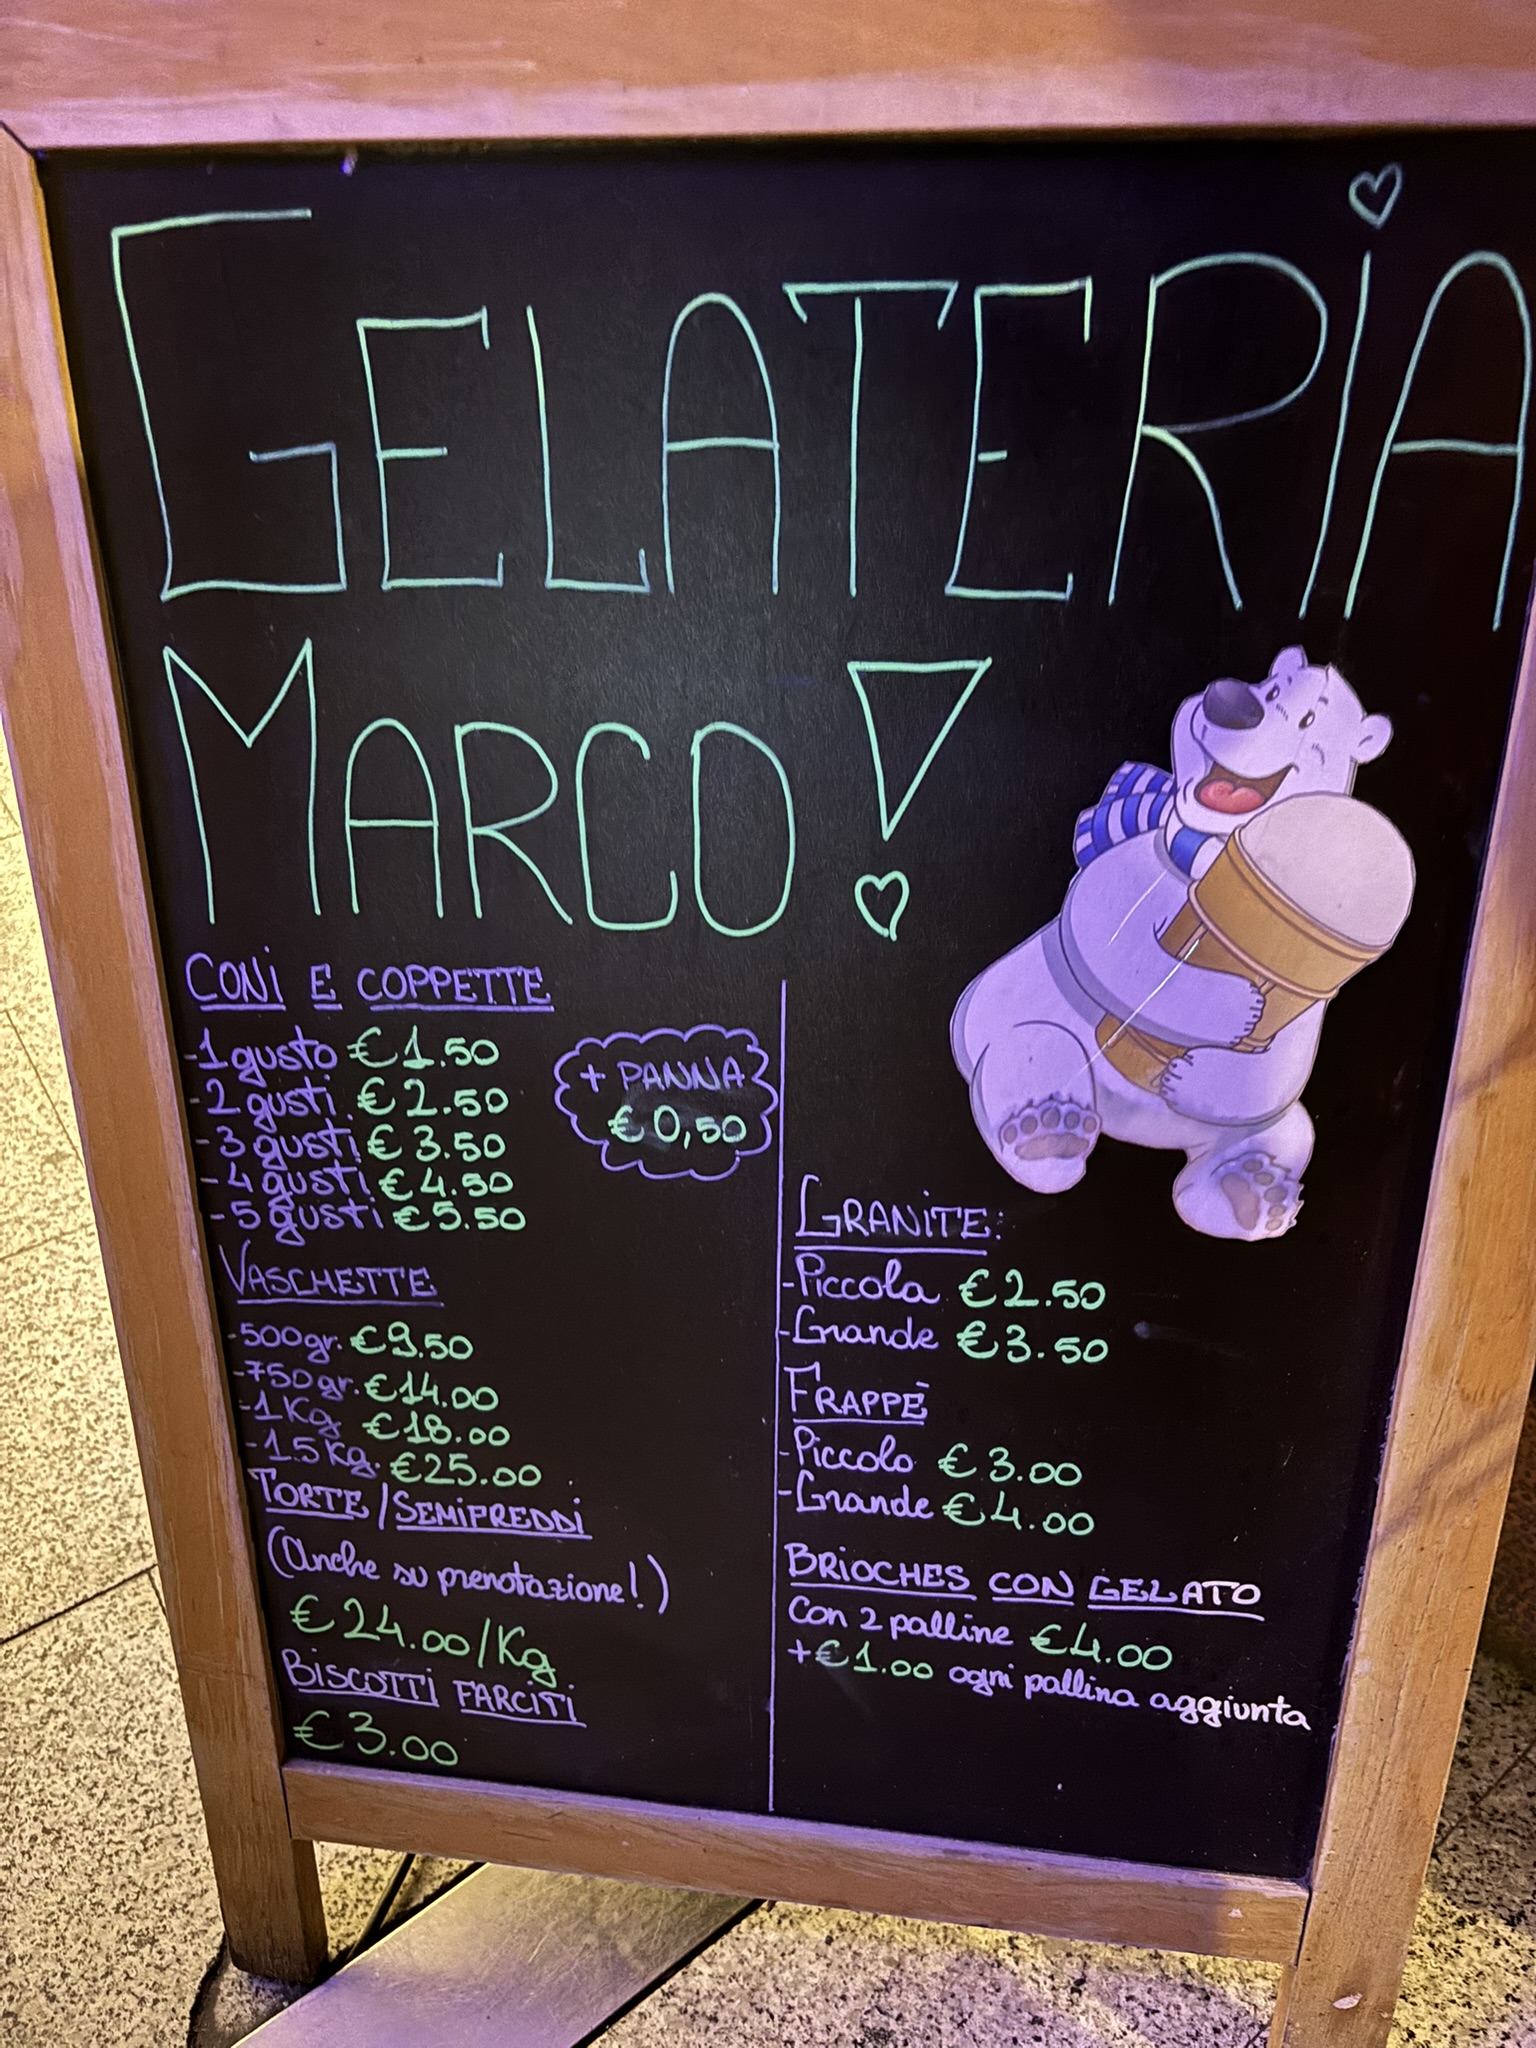 GELATERIA
MARCO!
CONI E COPPETTE
-1 gusto €1.50
-2 gusti. €2.50
-3 gusti €3.50
-4 gusti €4.50
-5 gusti €5.50
+ PANNA
€0,50
VASCHETTE
-500gr. €9.50
-750gr. €14.00
-1Kg €18.00
-1.5Kg. €25.00
TORTE/SEMIFREDDI
(Anche su prenotazione!)
€24.00/Kg
BISCOTTI FARCITI
€3.00
GRANITE:
-Piccola €2.50
-Grande €3.50
FRAPPÈ
-Piccolo €3.00
-Grande €4.00
BRIOCHES CON GELATO
Con 2 palline €4.00
+€1.00 ogni pallina aggiunta